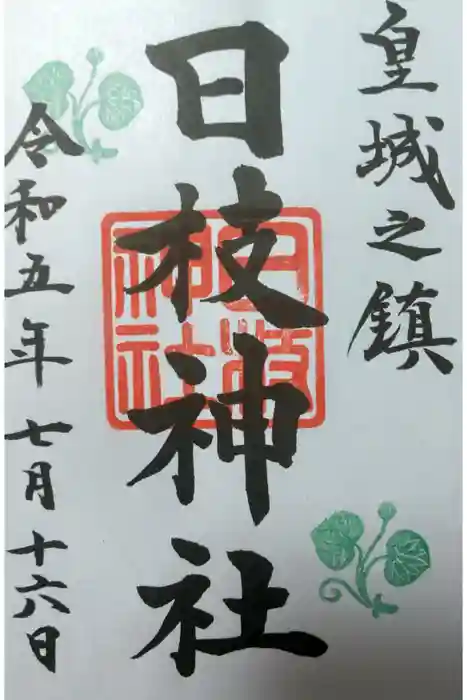 皇城之鎮
日枝神社
日枝神社
令和五年七月十六日